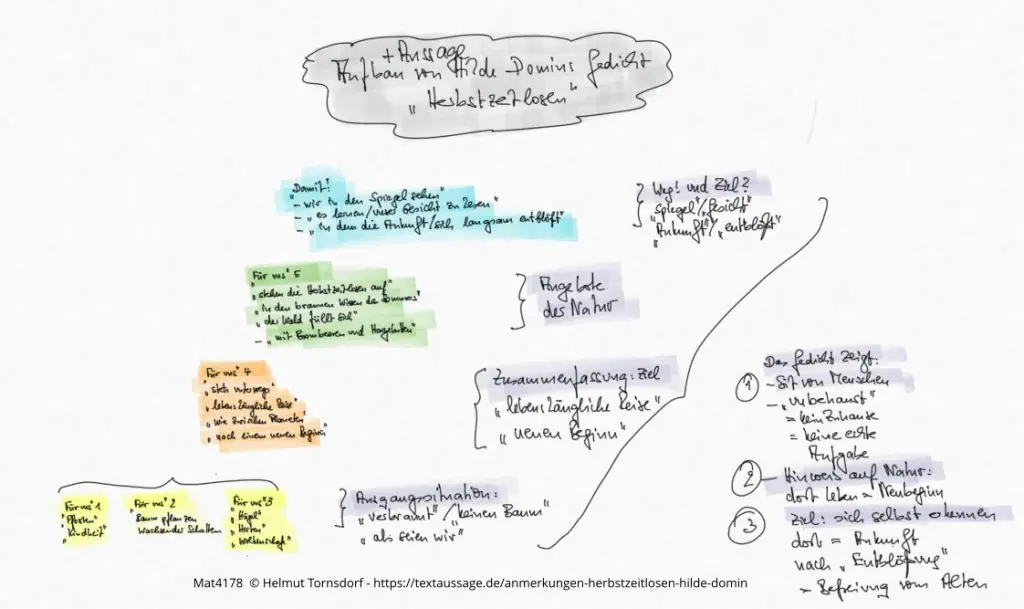 + Aussage
Aufbau von Hilde Domins Gedicht
„Herbstzeitlosen"
Damit:
- wir in den Spiegel sehen"
- „es lernen/unser Gesicht zu lesen"
- „in dem die Ankunft/sich langsam entblößt"
Weg! und Ziel?
„Spiegel"/„Gesicht"
„Ankunft"/„entblößt"
"
Für uns" 5
„stehen die Herbstzeitlosen auf"
„in den braunen Wiesen des Sommers"
„der Wald füllt sich"
- „mit Brombeeren und Hagebutten"
Angebote
der Natur
Für uns" 4
„stets unterwegs"
„lebenslängliche Reise"
„wie zwischen Planeten"
„nach einem neuen Beginn"
Zusammenfassung: Ziel
„lebenslängliche Reise"
„neuen Beginn"
Für uns 1
"Pfosten"
"Kindheit"
Für uns" 2
Baum pflanzen
wachsender Schatten
Für uns" 3
"Hügel"
"Hirten"
"Wolkenschaf"
Ausgangssituation:
„verbrannt"/keinen Baum"
„als seien wir"
Das Gedicht zeigt:
1 - Sit von Menschen
- „unbehaust"
= kein Zuhause
= keine echte
Aufgabe
2 - Hinweis auf Natur:
dort leben = Neubeginn
3 Ziel: sich selbst erkennen
dort = Ankunft
nach „Entblößung"
= Befreiung vom Alten
Mat4178 © Helmut Tornsdorf - https://textaussage.de/anmerkungen-herbstzeitlosen-hilde-domin